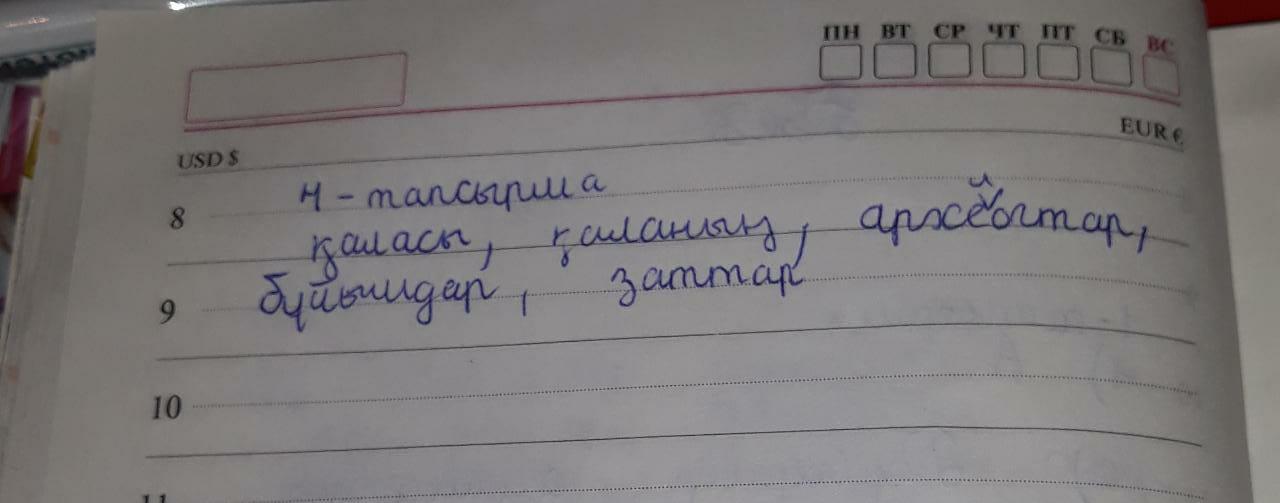 ПН ВТ СР ЧТ ПТ СБ ВС
USD $ EUR €
8 4-тапсырма
қаласы, қаланың,
9 бұйымдар, заттар
10
11